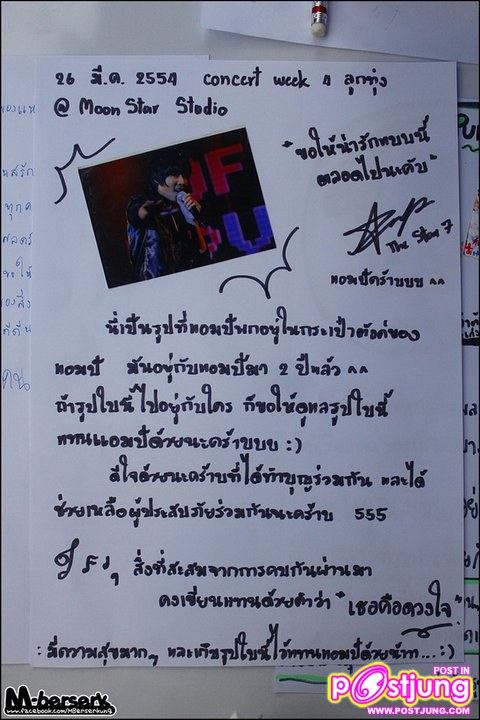 26 มี.ค. 2554 concert week 4 ลูกทุ่ง
@ Moon Star Studio
"ขอให้น่ารักแบบนี้
ตลอดไปนะคับ"
The Star 7
แอมป์คร้าบบบ ^^
นี่เป็นรูปที่แอมป์พกอยู่ในกระเป๋าตังค์ของ
แอมป์ มันอยู่กับแอมป์มา 2 ปีแล้ว ^^
ถ้ารูปใบนี้ไปอยู่กับใคร ก็ขอให้ดูแลรูปใบนี้
แทนแอมป์ด้วยนะคร้าบบบ :)
ดีใจด้วยนะคร้าบที่ได้ทำบุญร่วมกัน และได้
ช่วยเหลือผู้ประสบภัยร่วมกันนะคร้าบ 555
สิ่งที่สะสมจากการคบกันผ่านมา
คงเขียนแทนด้วยคำว่า "เธอคือดวงใจ"
: มีความสุขมากๆ และเก็บรูปใบนี้ไว้แทนแอมป์ด้วยน้าา...:)
M-berserk
www.facebook.com/MBerserkung
POST IN
Postjung
WWW.POSTJUNG.COM